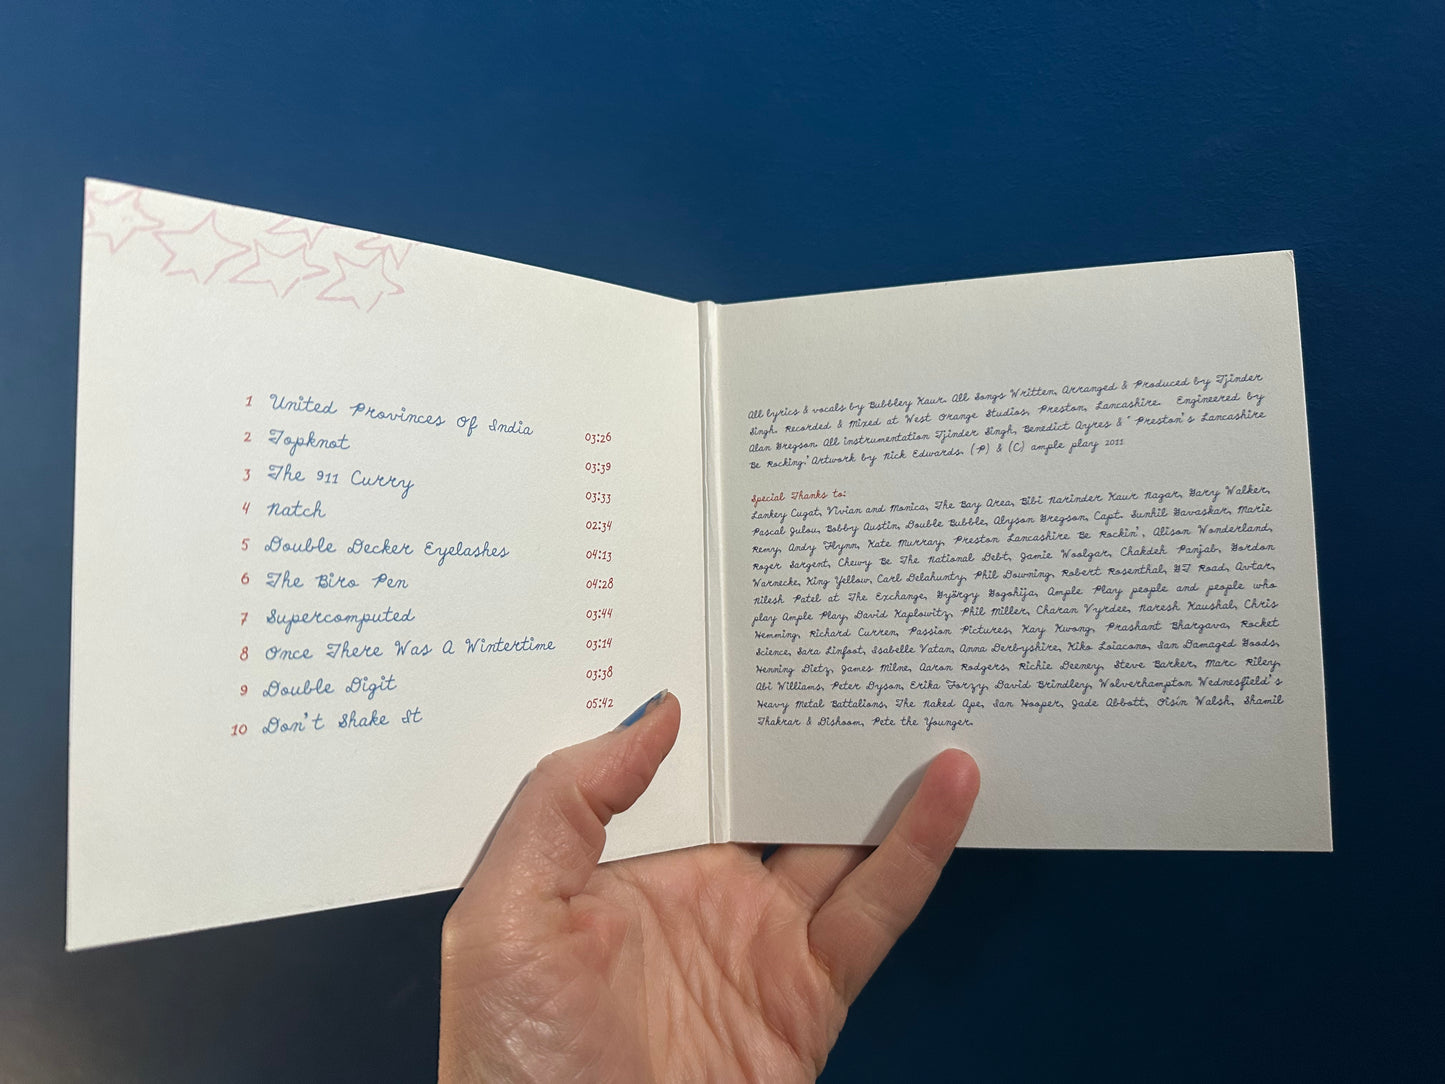 1 United Provinces Of India 03:26
2 Topknot 03:39
3 The 911 Curry 03:33
4 Natch 02:34
5 Double Decker Eyelashes 04:13
6 The Biro Pen 04:28
7 Supercomputed 03:44
8 Once There Was A Wintertime 03:14
9 Double Digit 03:38
10 Don't Shake It 05:42
All lyrics & vocals by Bubbley Kaur. All Songs Written, Arranged & Produced by Tjinder
Singh. Recorded & Mixed at West Orange Studios, Preston, Lancashire. Engineered by
Alan Gregson. All instrumentation Tjinder Singh, Benedict Ayres & "Preston's Lancashire
Be Rocking." Artwork by Nick Edwards. (P) & (C) ample play 2011
Special Thanks to:
Lankey Cugat, Vivian and Monica, The Bay Area, Bibi Narinder Kaur Nagar, Gary Walker,
Pascal Julou, Bobby Austin, Double Bubble, Alyson Gregson, Capt. Sunhil Gavaskar, Marie
Remy, Andy Flynn, Kate Murray, Preston Lancashire Be Rockin', Alison Wonderland,
Roger Sargent, Chewy Be The National Debt, Jamie Woolgar, Chakdeh Panjab, Gordon
Warnecke, King Yellow, Carl Delahunty, Phil Downing, Robert Rosenthal, GT Road, Avtar,
Nilesh Patel at The Exchange, György Gogohija, Ample Play people and people who
play Ample Play, David Kaplowitz, Phil Miller, Charan Vyrdee, Naresh Kaushal, Chris
Hemming, Richard Curren, Passion Pictures, Kay Kwong, Prashant Bhargava, Rocket
Science, Sara Linfoot, Isabelle Vatan, Anna Derbyshire, Kiko Loiacono, Ian Damaged Goods,
Henning Dietz, James Milne, Aaron Rodgers, Richie Deeney, Steve Barker, Marc Riley,
Abi Williams, Peter Dyson, Erika Forzy, David Brindley, Wolverhampton Wednesfield's
Heavy Metal Battalions, The Naked Ape, Ian Hooper, Jade Abbott, Oisín Walsh, Shamil
Thakrar & Dishoom, Pete the Younger.